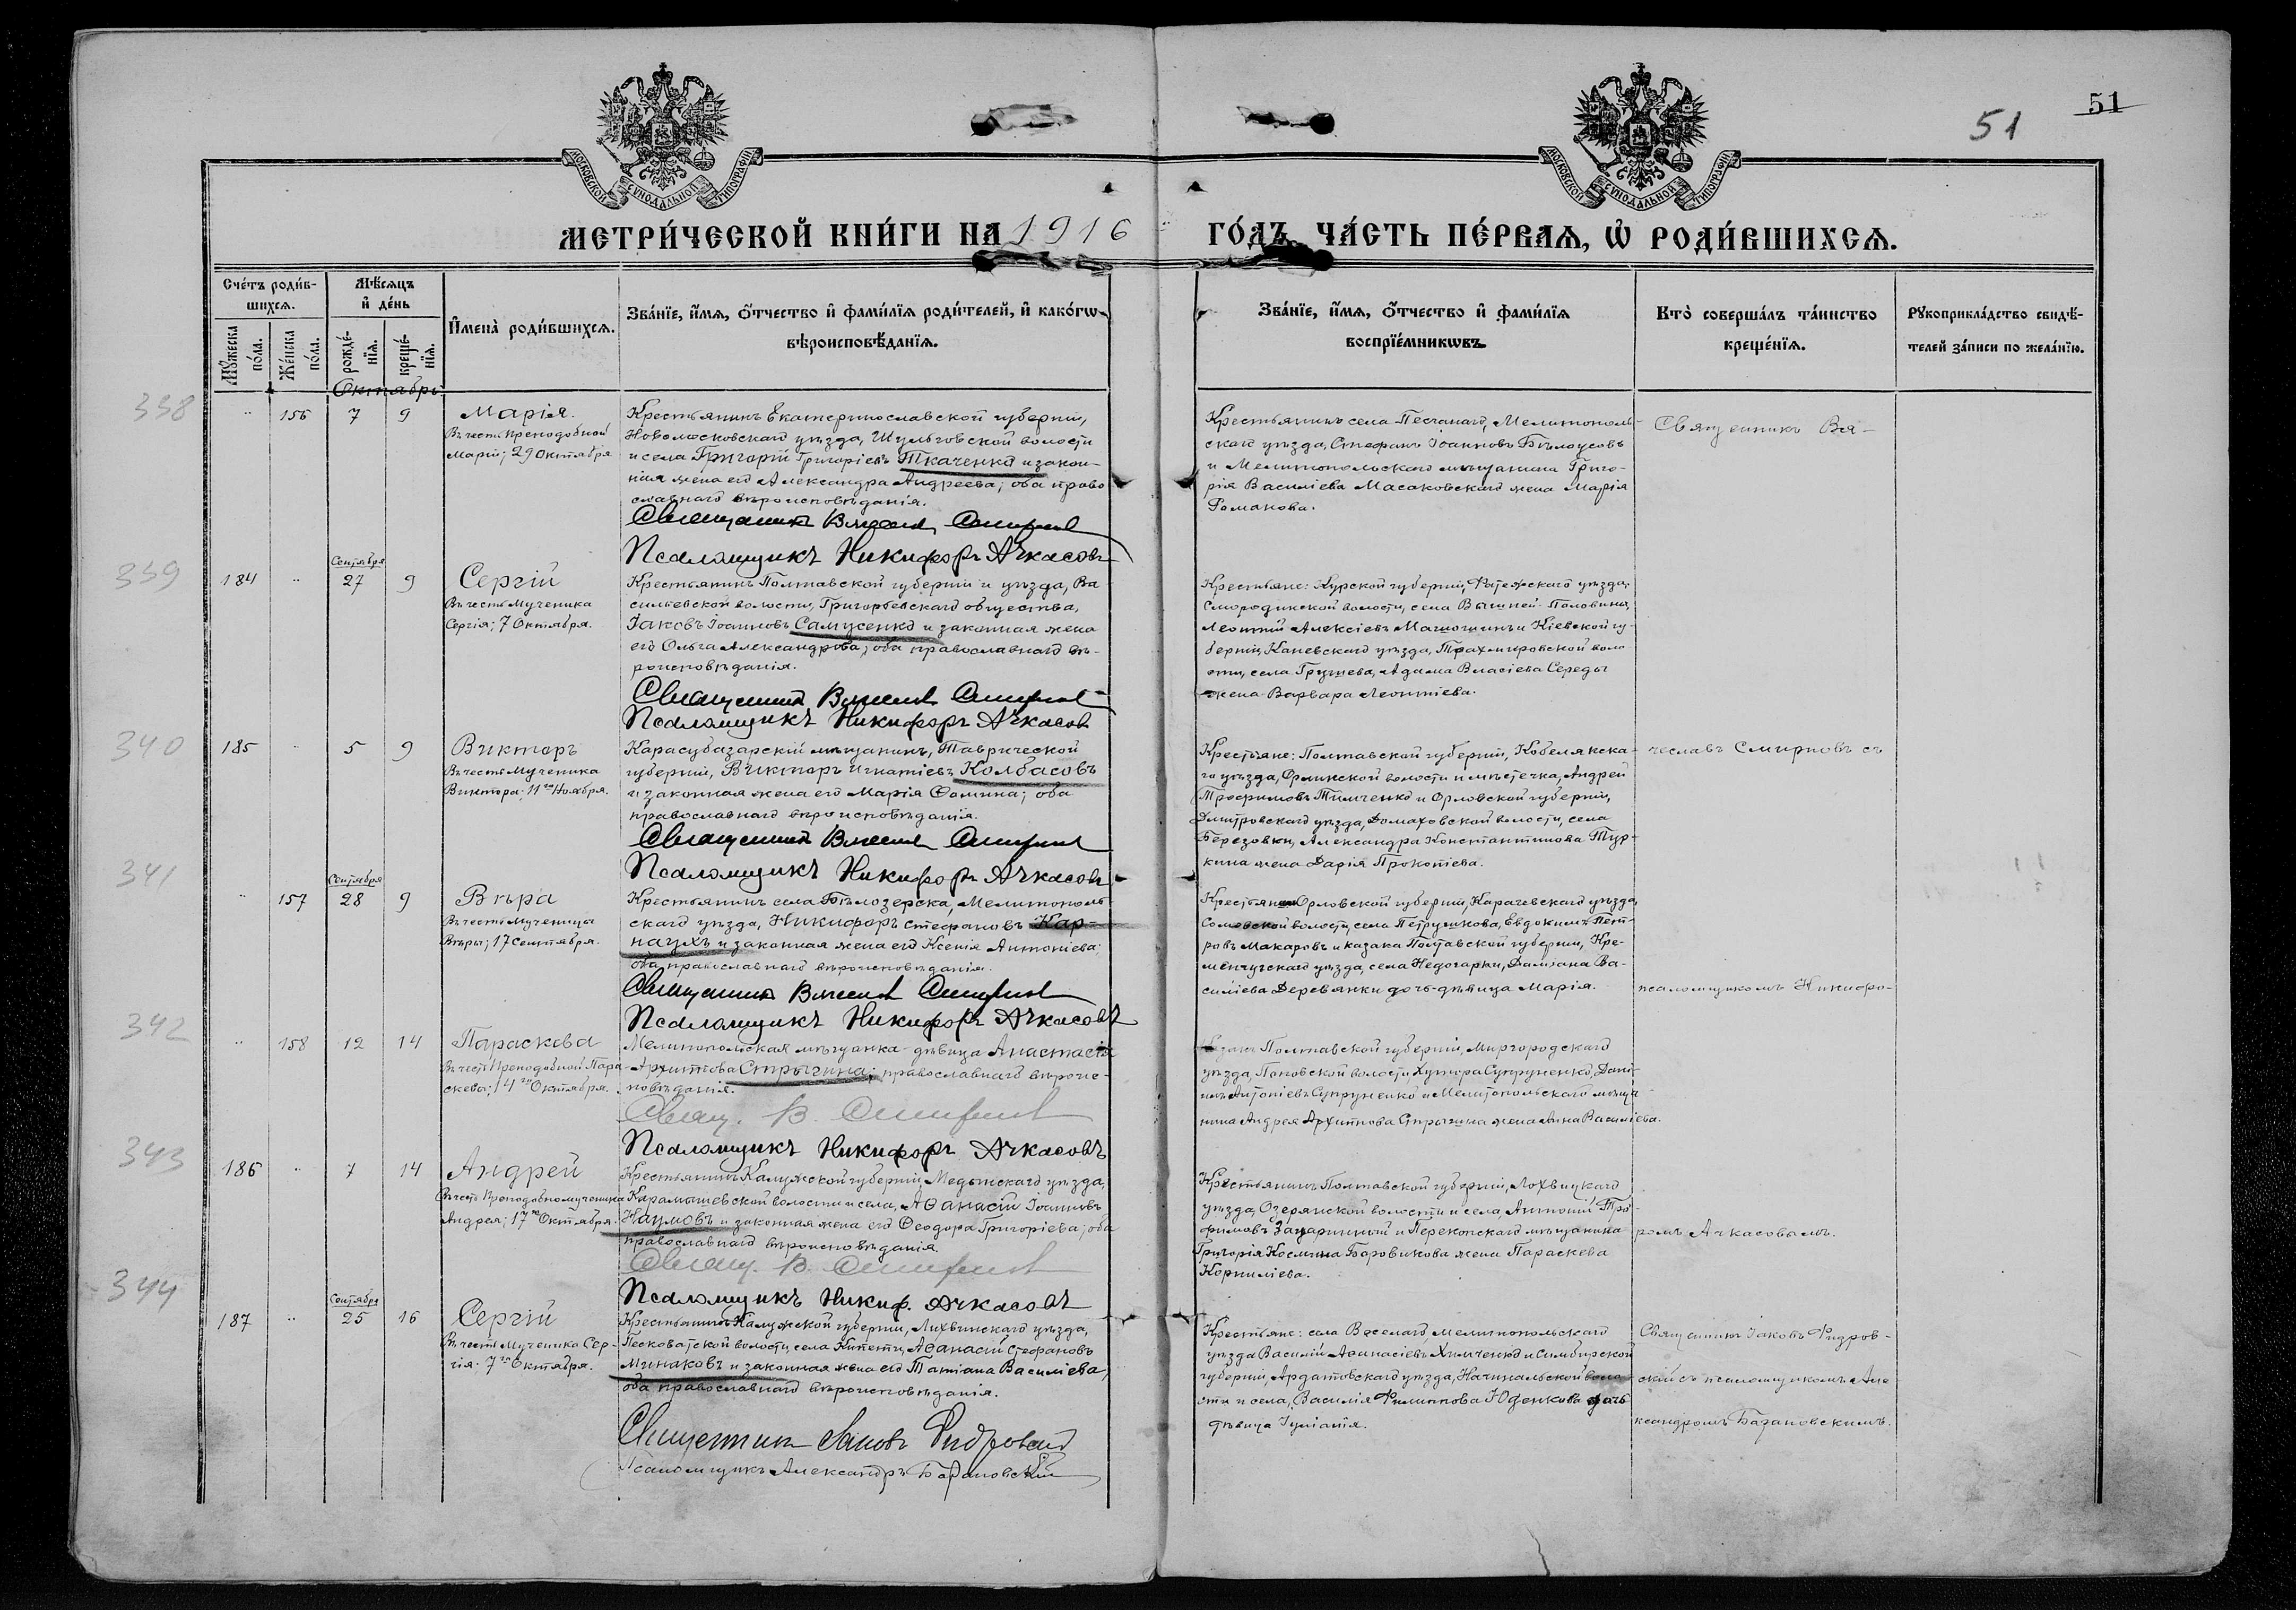 51
51
МОСКОВСКОЙ СѴНОДАЛЬНОЙ ТИПОГРАФІИ
МОСКОВСКОЙ СѴНОДАЛЬНОЙ ТИПОГРАФІИ
МЕТРИ́ЧЕСКОЙ КНИ́ГИ НА 1916 ГО́ДЪ, ЧА́СТЬ ПЕ́РВАЯ, Ѡ҆ РОДИ́ВШИХСЯ.
Сче́тъ роди́в-
шихся.
Мꙋ́жеска по́ла.
Же́нска по́ла.
Мѣ́сяцъ
и҆ де́нь
рожде́-
нїя.
креще́-
нїя.
И҆мена̀ роди́вшихся.
Зва́нїе, и҆́мя, ѻ҆́тчество и҆ фами́лїя роди́телей, и҆ како́гѡ
вѣроисповѣ́данїя.
Зва́нїе, и҆́мя, ѻ҆́тчество и҆ фами́лїя
воспрїе́мникѡвъ.
Кто̀ соверша́лъ та́инство
креще́нїя.
Рꙋкоприкла́дство свидѣ́-
телей за́писи по жела́нїю.
Октябрь
338
" 156 7 9
Марія.
Въ честь Преподобной
Маріи; 29 Октября
Крестьянинъ Екатеринославской губерніи,
Новомосковскаго уѣзда, Шульговской волости
и села Григорій Григоріевъ Ткаченко и закон-
ная жена его Александра Андреева; оба право
славнаго вѣроисповѣданія.
Священникъ Вячеслав Смирнов
Псаломщикъ Никифоръ Ачкасовъ
Крестьянинъ села Песчанаго, Мелитополь-
скаго уѣзда, Стефанъ Іоанновъ Бѣлоусовъ
и Мелитопольскаго мѣщанина Григо-
рія Василіева Масаковскаго жена Марія
Романова.
Священникъ Вя-
339
184 " Сентября 27 9
Сергій
Въ честь Мученика
Сергія; 7 Октября.
Крестьянинъ Полтавской губерніи и уѣзда, Ва
сильевской волости, Григорьевскаго общества,
Іаковъ Іоанновъ Самусенко и законная жена
его Ольга Александрова; оба православнаго вѣ-
роисповѣданія.
Священник Вячеслав Смирнов
Псаломщикъ Никифоръ Ачкасов
Крестьяне: Курской губерніи, Фатежскаго уѣзда,
Смородинской волости, села Вышней-Половины,
Леонтій Алексіевъ Машошинъ и Кіевской гу-
берніи, Каневскаго уѣзда, Трахтировской воло
сти, села Грушева, Адама Власіева Середы
жена Варвара Леонтіева.
340
185 " 5 9
Викторъ
Въ честь Мученика
Виктора; 11го Ноября.
Карасубазарскій мѣщанинъ, Таврической
губерніи, Викторъ Игнатіевъ Колбасовъ
и законная жена его Марія Фомина; оба
православнаго вѣроисповѣданія.
Священник Вячеслав Смирнов
Псаломщикъ Никифоръ Ачкасовъ
Крестьяне: Полтавской губерніи, Кобелякска-
го уѣзда, Орликской волости и мѣстечка, Андрей
Трофимовъ Тимченко и Орловской губерніи,
Дмитровскаго уѣзда, Домаховской волости, села
Березовки, Александра Константинова Тур-
кина жена Дарія Прокопіева.
чеславъ Смирновъ съ
341
" 157 Сентября 28 9
Вѣра
Въ честь Мученицы
Вѣры; 17 Сентября.
Крестьянинъ села Бѣлозерска, Мелитополь-
скаго уѣзда, Никифоръ Стефановъ Кар-
наухъ и законная жена его Ксенія Антоніева;
оба православнаго вѣроисповѣданія.
Священник Вячеслав Смирнов
Псаломщикъ Никифоръ Ачкасовъ
Орловской губерніи, Карачевскаго уѣзда,
волости, села Петрушкова, Евдокимъ Пет-
ровъ Макаровъ и казака Полтавской губерніи, Кре-
менчугскаго уѣзда, села Недогарки, Даміана Ва-
силіева Деревянки дочь-дѣвица Марія.
псаломщикомъ Никифо-
342
" 158 12 14
Параскева
Въ честь Преподобной Пара-
скевы; 14го Октября.
Мелитопольская мѣщанка-дѣвица Анастасія
Архиппова Стрыгина; православнаго вѣроис-
повѣданія.
Свящ. В. Смирнов
Псаломщикъ Никифоръ Ачкасовъ
Полтавской губерніи, Миргородскаго
уѣзда, Поповской волости, хутора Супруненко, Дани-
илъ Антоніевъ Супруненко и Мелитопольскаго мѣща
нина Андрея Архиппова Стрыгина жена Анна Василіева.
343
186 " 7 14
Андрей
Въ честь Преподобномученика
Андрея; 17го Октября.
Крестьянинъ Калужской губерніи, Медынскаго уѣзда,
Карамышевской волости и села, Аѳанасій Іоанновъ
Наумовъ и законная жена его Ѳеодора Григоріева; оба
православнаго вѣроисповѣданія.
Свящ. В. Смирнов
Псаломщикъ Никиф. Ачкасовъ
Крестьянинъ Полтавской губерніи, Лохвицкаго
уѣзда, Озерянской волости и села, Антоній Тро-
фимовъ и Перекопскаго мѣщанина
Григорія Космина Боровикова жена Параскева
Корниліева.
ромъ Ачкасовымъ.
344
187 " Сентября 25 16
Сергій
Въ честь Мученика Сер-
гія. 7го Октября.
Крестьянинъ Калужской губерніи, Лихвинскаго уѣзда,
Песковатской волости, села Кипети, Аѳанасій Стефановъ
Минаковъ и законная жена его Татіана Василіева,
оба православнаго вѣроисповѣданія.
Священник Іаковъ Фидровскій
Псаломщикъ Александръ Базановскій
Крестьяне: села Веселаго, Мелитопольскаго
уѣзда Василій Аѳанасіевъ Химченко и Симбирской
губерніи, Ардатовскаго уѣзда, воло
сти и села, Василія Филиппова Юденкова дочь
дѣвица Іуліанія.
Священникъ Іаковъ Фидров-
скій съ псаломщикомъ Але
ксандромъ Базановскимъ.